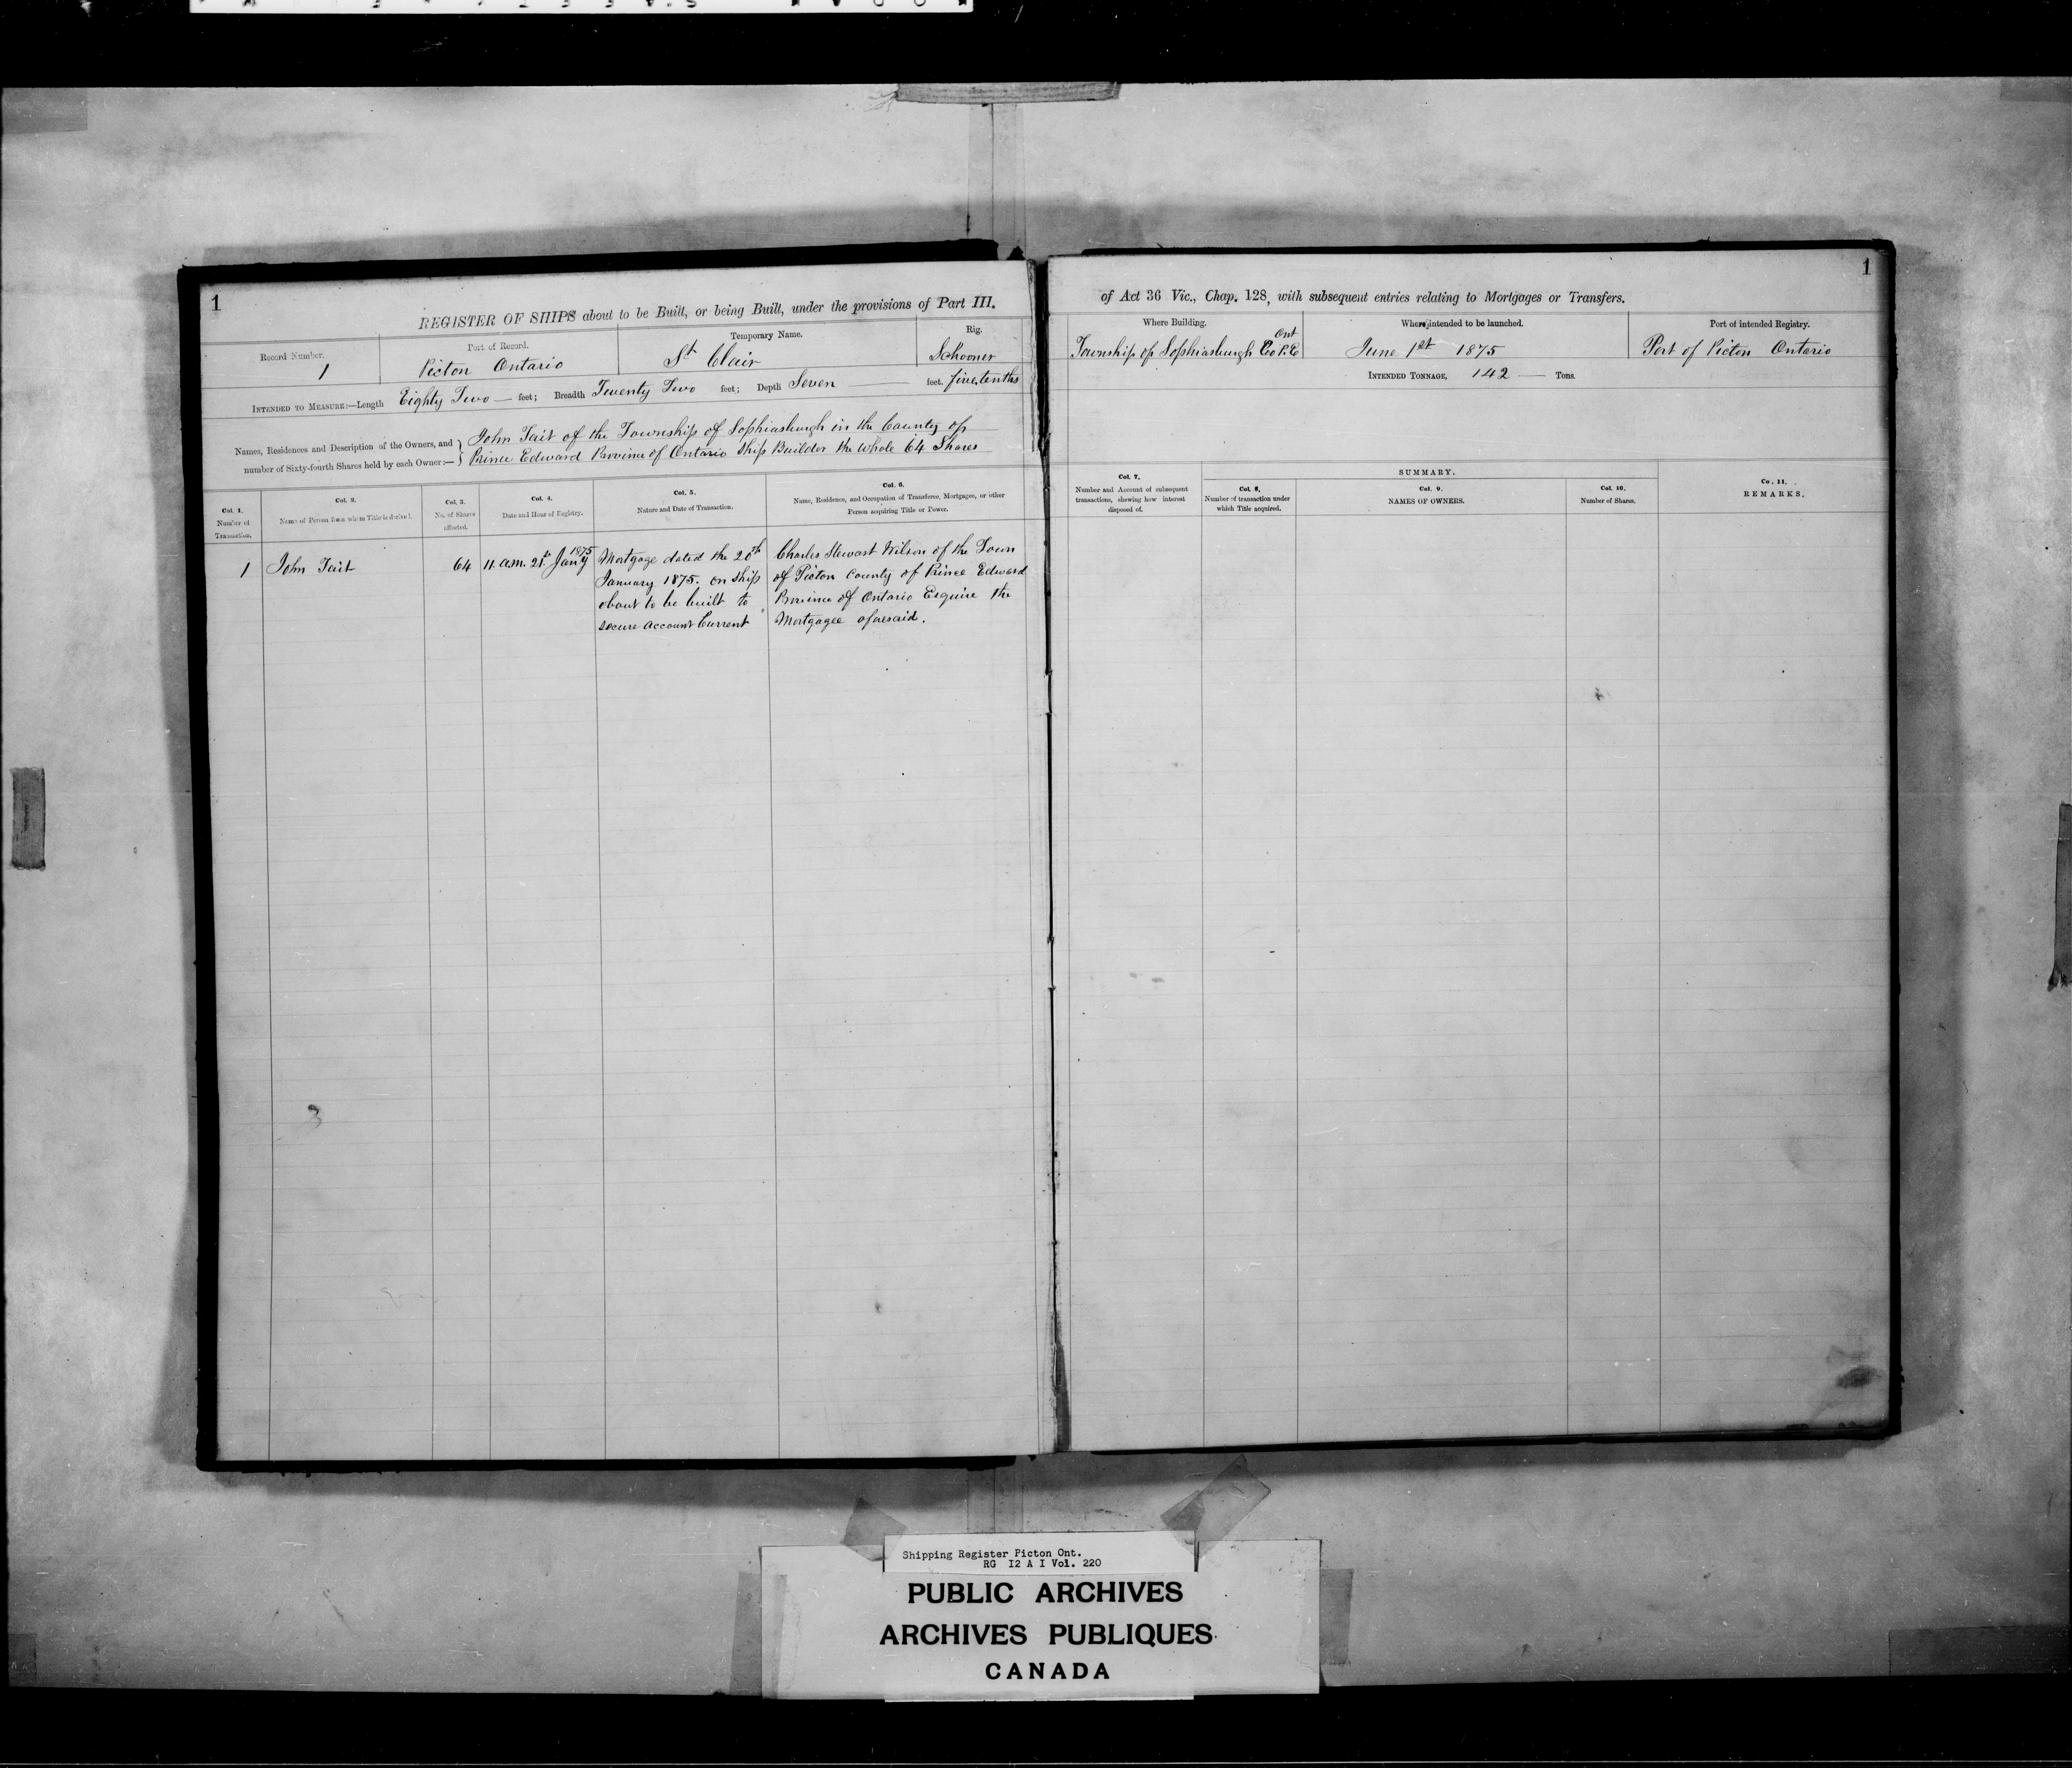 1
REGISTER OF SHIPS about to be Built, or being Built, under the provisions of Part III.
Record Number.
1
Port of Record.
Picton Ontario
Temporary Name.
St Clair
Rig.
Schooner
INTENDED TO MEASURE:—Length Eighty Two — feet; Breadth Twenty Two feet; Depth Seven — feet. five tenths
Names, Residences and Description of the Owners, and
number of Sixty-fourth Shares held by each Owner:—
John Tait of the Township of Sophiasburgh in the County of
Prince Edward Province of Ontario Ship Builder the whole 64 Shares
Col. 1.
Number of
Transaction.
Col. 2.
Name of Person from whom Title is derived.
Col. 3.
No. of Shares
affected.
Col. 4.
Date and Hour of Registry.
Col. 5.
Nature and Date of Transaction.
Col. 6.
Name, Residence, and Occupation of Transferee, Mortgagee, or other
Person acquiring Title or Power.
1
John Tait
64
1875
11. a.m. 21st Jany
Mortgage dated the 20th
January 1875. on ship
about to be built to
secure Account Current
Charles Stewart Wilson of the Town
of Picton County of Prince Edward
Province of Ontario Esquire the
Mortgagee aforesaid.
1
of Act 36 Vic., Chap. 128, with subsequent entries relating to Mortgages or Transfers.
Where Building.
Ont
Township of Sophiasburgh Co P.E
Where intended to be launched.
June 1st 1875
Port of intended Registry.
Port of Picton Ontario
INTENDED TONNAGE, 142 — Tons.
Col. 7.
Number and Account of subsequent
transactions, shewing how interest
disposed of.
SUMMARY.
Col. 8.
Number of transaction under
which Title acquired.
Col. 9.
NAMES OF OWNERS.
Col. 10.
Number of Shares.
Co. 11.
REMARKS.
Shipping Register Picton Ont.
RG I2 A I Vol. 220
PUBLIC ARCHIVES
ARCHIVES PUBLIQUES
CANADA